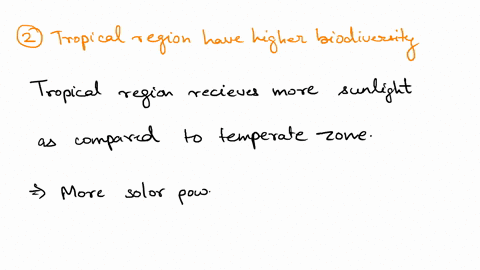 ② Tropical region have higher biodiversity
Tropical region recieves more sunlight
as compared to temperate zone.
⇒ More solor pow.